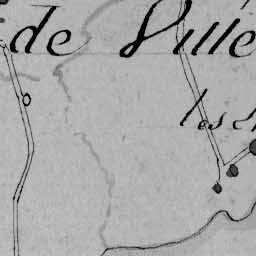 de Ville
les